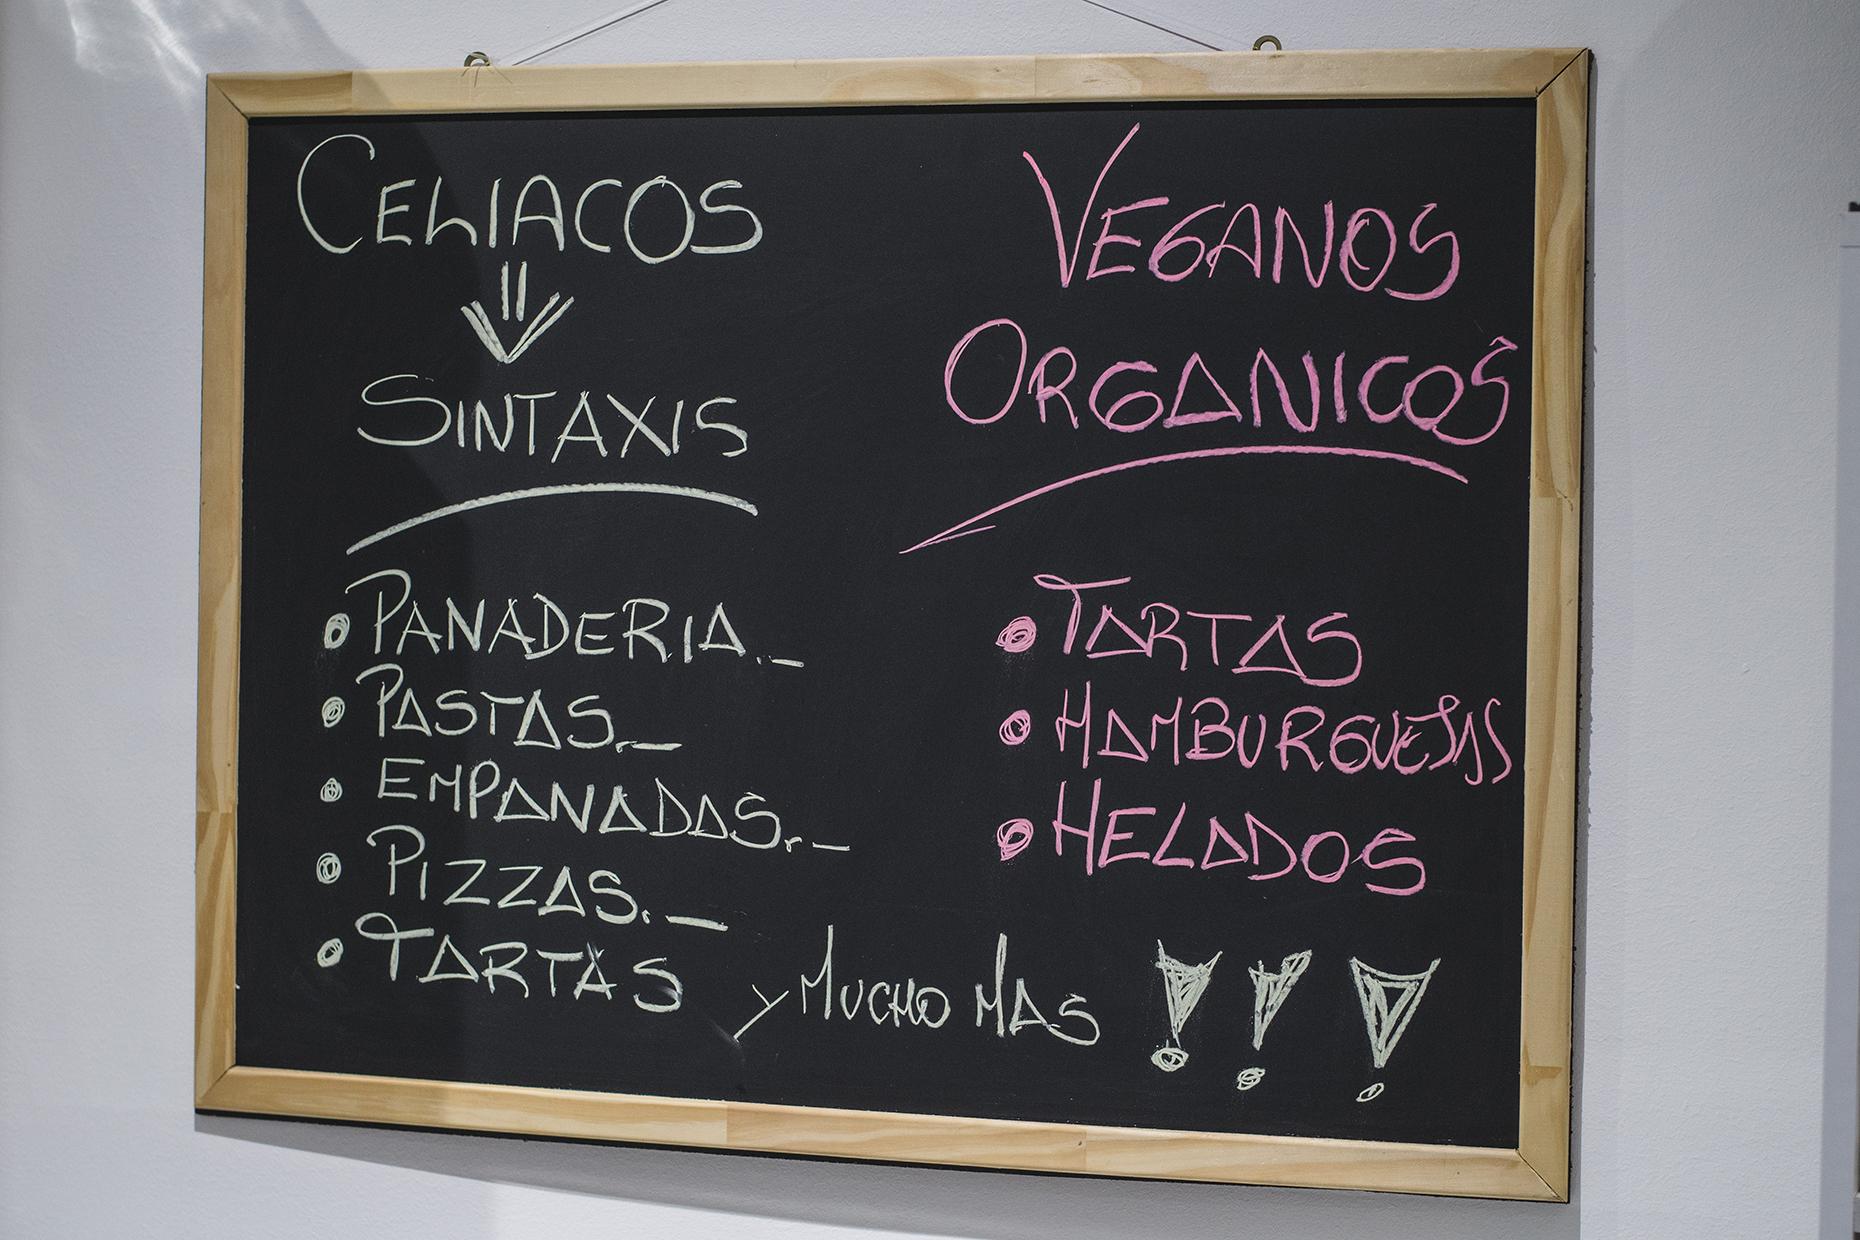 CELIACOS
SINTAXIS
PANADERIA.-
PASTAS.-
EMPANADAS.-
PIZZAS.-
TARTAS
VEGANOS
ORGANICOS
TARTAS
HAMBURGUESAS
HELADOS
y MUCHO MAS !!!